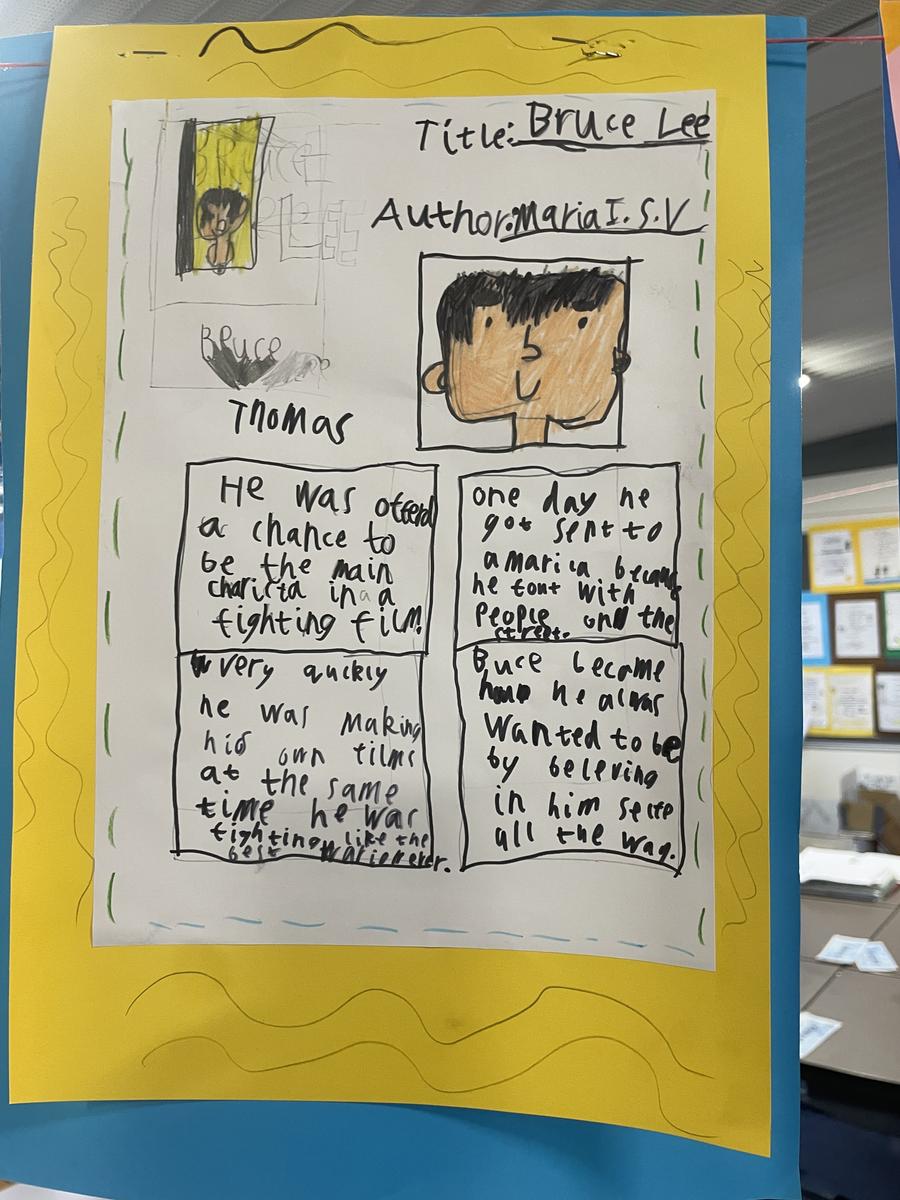 Title: Bruce Lee
Author: Maria I.S.V
BRUCE
LEE
Bruce
Thomas
He was offerd
a chance to
be the main
charicta in a
fighting film.
one day he
got sent to
amarica because
he fout with
people ond the
street.
very quickly
he was making
his own films
at the same
time he was
fighting like the
best warier ever.
Buce became
who he alwas
wanted to be
by beleving
in him selfe
all the way.